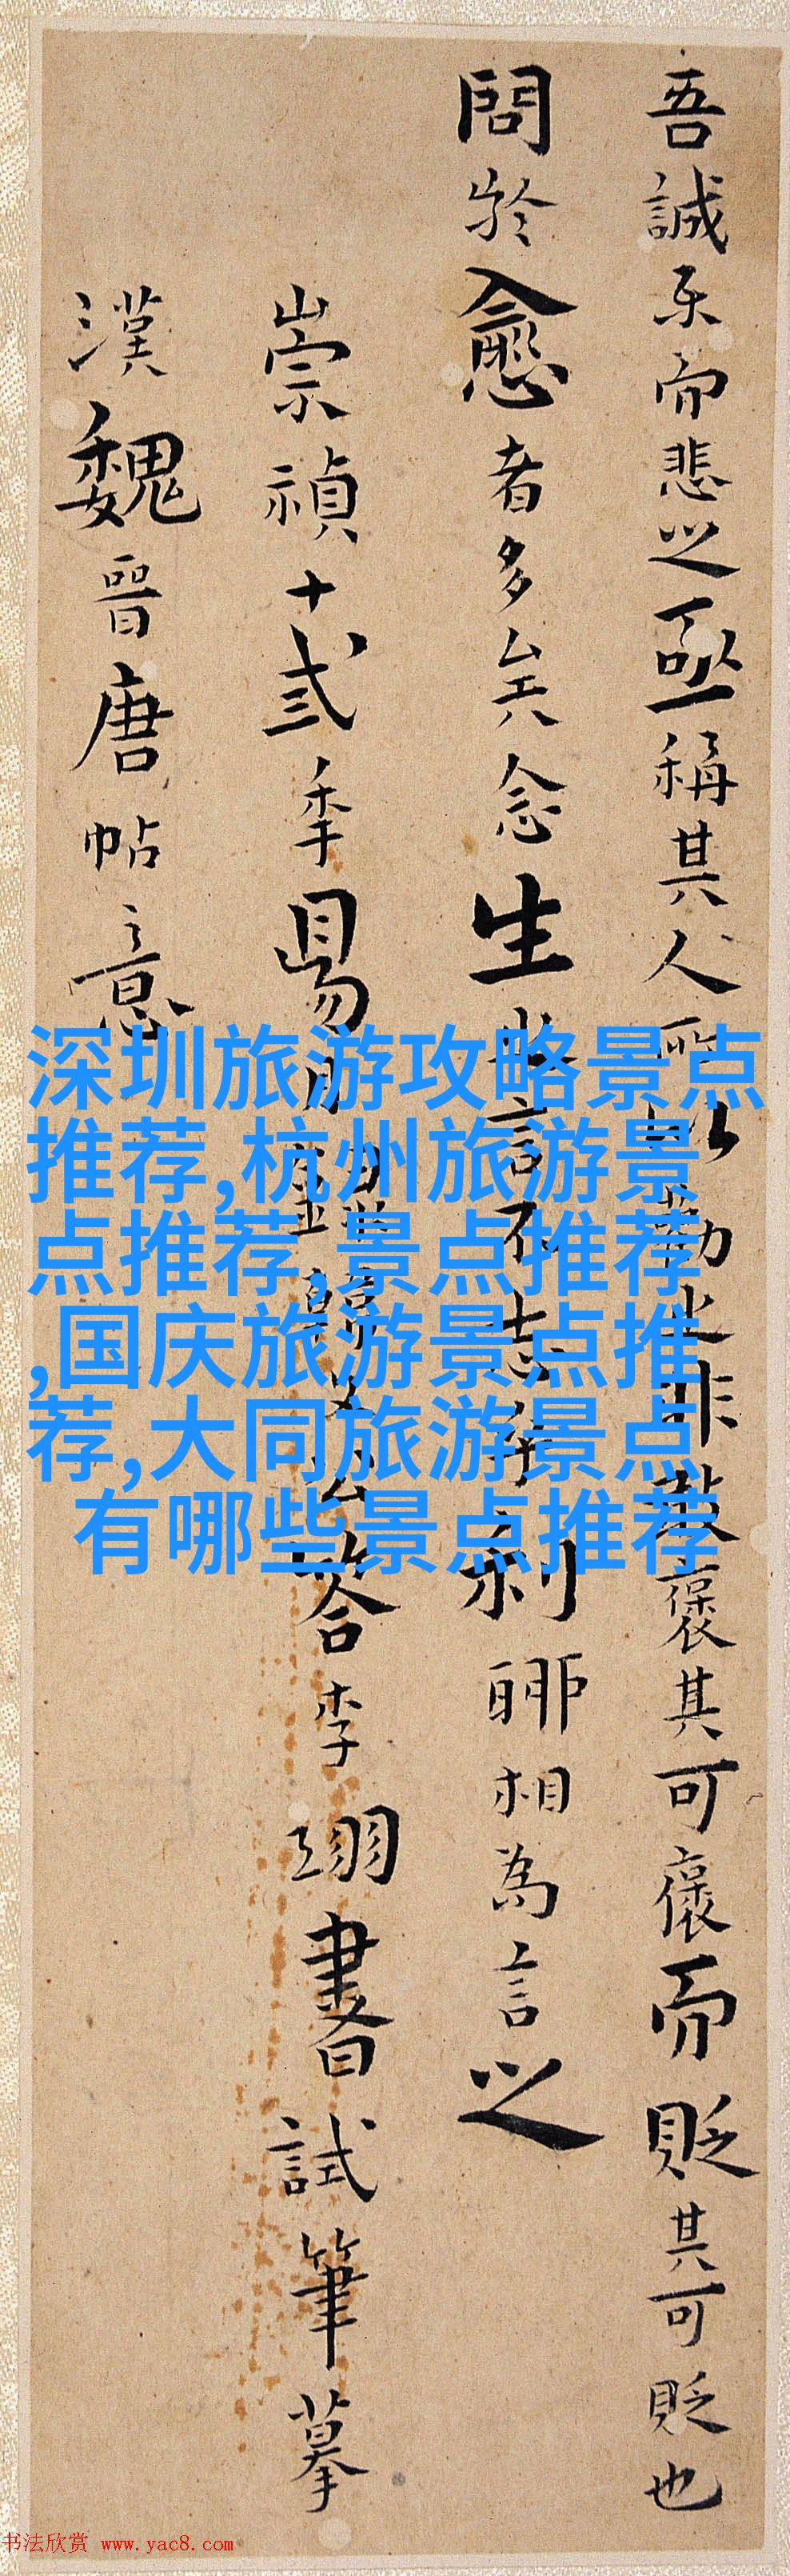 吾誠樂而悲之亟稱其人
褒其可褒而貶其可貶也
問於愈者多矣念生
言不志
利
相為言之
崇禎十弍季
李翊書試筆摹
漢魏晉唐帖意
深圳旅游攻略景点
推荐,杭州旅游景
点推荐,景点推荐
,国庆旅游景点推
荐,大同旅游景点
有哪些景点推荐
书法欣赏 www.yac8.com